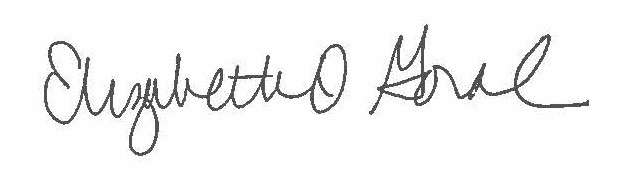 Elizabeth D Goral